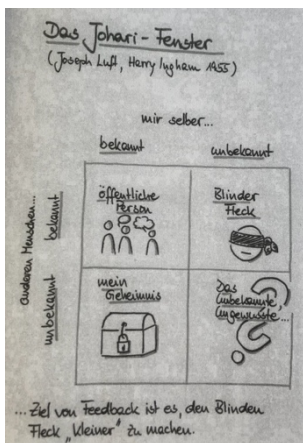 Das Johari-Fenster
(Joseph Luft, Harry Ingham 1955)
mir selber...
bekannt
unbekannt
anderen Menschen...
bekannt
öffentliche
Person
Blinder
Fleck
unbekannt
mein
Geheimnis
Das
Unbekannte,
Ungewusste...
... Ziel von Feedback ist es, den Blinden
Fleck „kleiner“ zu machen.